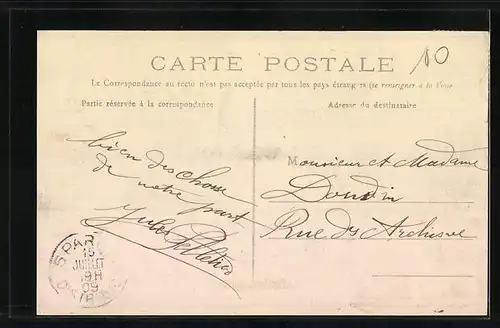 CARTE POSTALE
10
La Correspondance au recto n'est pas acceptée par tous les pays étrangers (se renseigner à la Poste
Partie réservée à la correspondance
Adresse du destinataire
bien des chose
de notre part
Jules Pelletier
Monsieur et Madame
Doudin
Rue des Archives
PARIS
15
JUILLET
9H
09